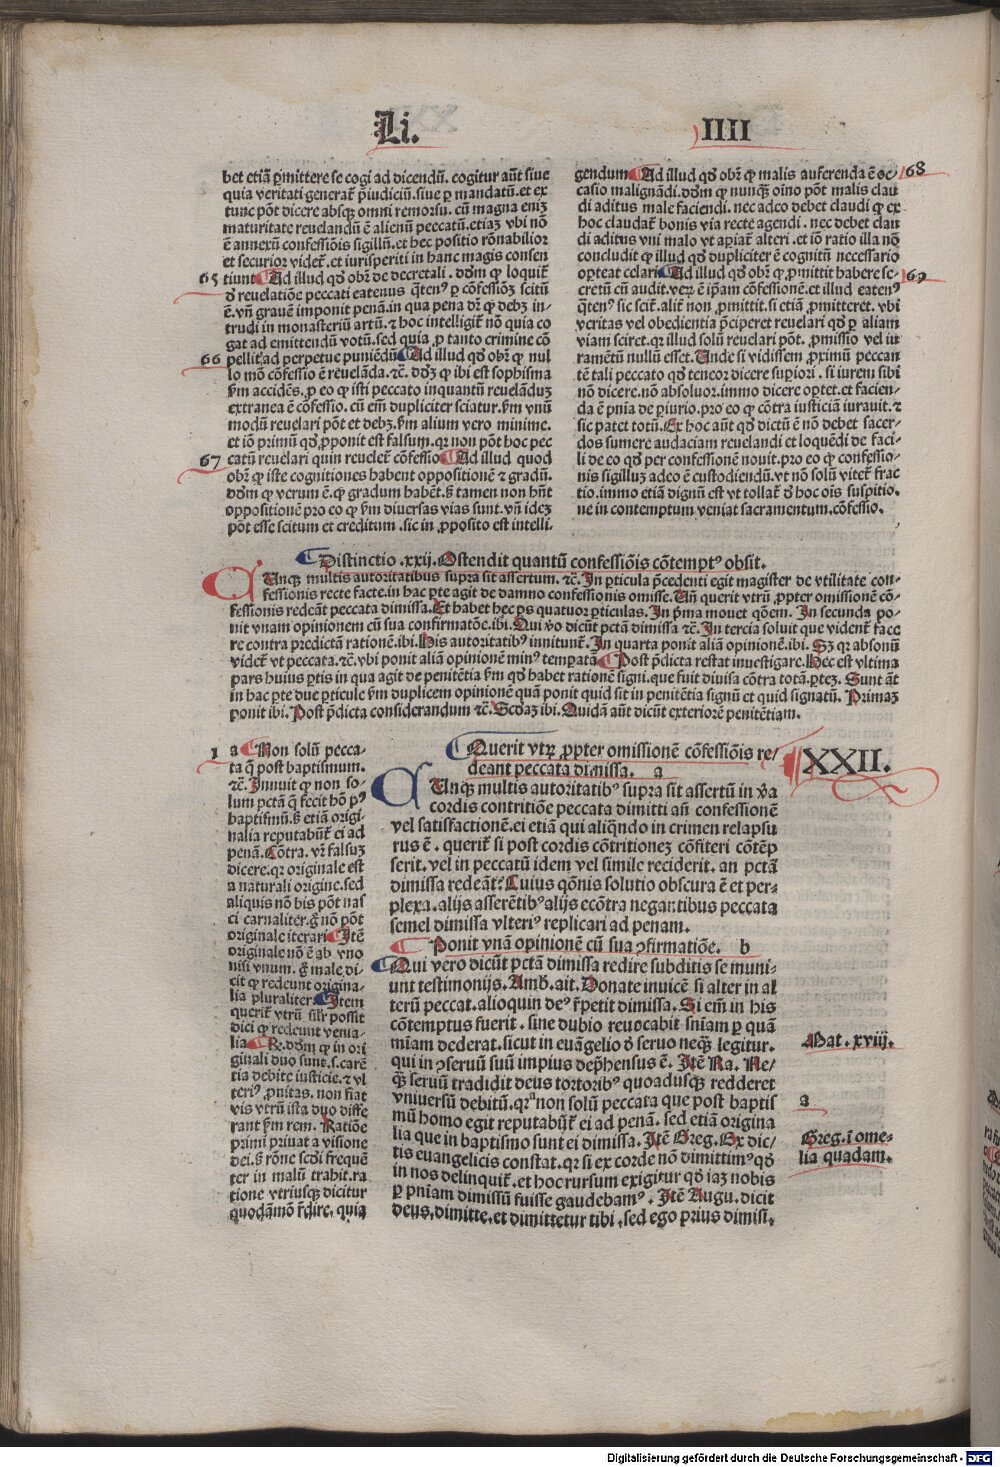 Li.
IIII
bet etiā ꝑmittere se cogi ad dicendū. cogitur aūt siue
quia veritati generat p̄iudiciū. siue ꝑ mandatū. et ex
tunc pōt dicere absqꝫ omni remorsu. cū magna enim
maturitate reuelandū ē alienū peccatū. etiaꝫ vbi nō
ē annexū confessiōis sigillū. et hec positio rōnabilior
et securior videt. et iurisperiti in hanc magis consen
65 tiunt Ad illud qd̄ obr̄ de decretali. dd̄m ꝙ loquit
d̓ reuelatiōe peccati eatenus q̄tenꝰ ꝑ cōfessiōꝫ scitū
ē. vn̄ grauē imponit penā. in qua pena dr̄ ꝙ debꝫ in-
trudi in monasteriū artū. ⁊ hoc intelligit nō quia co
gat ad emittendū votū. sed quia ꝓ tanto crimine cō
66 pellit ad perpetue puniēdū Ad illud qd̄ obr̄ ꝙ nul
lo mō cōfessio ē reuelāda. ⁊c̄. dd̄ꝫ ꝙ ibi est sophisma
ẜm accidēs. ꝓ eo ꝙ isti peccato inquantū reuelādum
extranea ē cōfessio. cū em̄ dupliciter sciatur. ẜm vnū
modū reuelari pōt et debꝫ. ẜm alium vero minime.
et iō primū qd̄ ꝓponit est falsum. qꝛ non pōt hoc pec
67 catū reuelari quin reuelet cōfessio Ad illud quod
obr̄ ꝙ iste cognitiones habent oppositionē ⁊ gradū.
dd̄m ꝙ verum ē. ꝙ gradum habēt. ẜ tamen non hn̄t
oppositionē pro eo ꝙ ẜm diuersas vias sunt. vn̄ ideꝫ
pōt esse scitum et creditum. sic in ꝓposito est intelli.
gendum Ad illud qd̄ obr̄ ꝙ malis auferenda ē oc- 68
casio malignādi. dd̄m ꝙ nunqꝫ oīno pōt malis clau
di aditus male faciendi. nec adeo debet claudi ꝙ ex
hoc claudat bonis via recte agendi. nec debet clau
di aditus vni malo vt aꝑiat alteri. et iō ratio illa nō
concludit ꝙ illud qd̄ dupliciter ē cognitū necessario
opteat celari Ad illud qd̄ obr̄ ꝙ ꝓmittit habere se- 69
cretū cū audit. veꝝ ē ip̄am cōfessionē. et illud eatenꝰ
q̄tenꝰ sic scit. alit̄ non ꝓmittit. si etiā ꝓmitteret. vbi
veritas vel obedientia p̄ciperet reuelari qd̄ ꝑ aliam
viam sciret. qꝛ illud solū reuelari pōt. ꝓmissio vel iu
ramētū nullū esset. Unde si vidissem ꝓximū peccan
tē tali peccato qd̄ teneor dicere suꝑiori. si iurem sibi
nō dicere. nō absoluor. immo dicere optet. et facien-
da ē pn̄ia de ꝑiurio. pro eo ꝙ cōtra iusticiā iurauit. ⁊
sic patet totū. Ex hoc aūt qd̄ dictū ē nō debet sacer-
dos sumere audaciam reuelandi et loquēdi de faci-
li de eo qd̄ per confessionē nouit. pro eo ꝙ confessio-
nis sigillum adeo ē custodiendū. vt nō solū vitet frac
tio. immo etiā dignū est vt tollat d̓ hoc oīs suspitio.
ne in contemptum veniat sacramentum. cōfessio.
Distinctio .xxij. Ostendit quantū confessiōis cōtemptꝰ obsit.
CUnqꝫ multis autoritatibus supra sit assertum. ⁊c̄. In ꝑticula p̄cedenti egit magister de vtilitate con-
fessionis recte facte. in hac ꝑte agit de damno confessionis omisse. Un̄ querit vtrū ꝓpter omissionē cō-
fessionis redeāt peccata dimissa. Et habet hec ꝑs quatuor ꝑticulas. In p̄ma mouet qōem. In secunda po-
nit vnam opinionem cū sua confirmatōe. ibi. Qui v̄o dicūt pctā dimissa ⁊c̄. In tercia soluit que vident face
re contra predictā rationē. ibi. His autoritatibꝰ innitunt. In quarta ponit aliā opinionē. ibi. Sꝫ qꝛ absonū
videt vt peccata. ⁊c̄. vbi ponit aliā opinionē minꝰ temꝑatā Post p̄dicta restat inuestigare. Hec est vltima
pars huius ꝑtis in qua agit de penitētia ẜm qd̄ habet rationē signi. que fuit diuisa cōtra totā ꝑteꝫ. Sunt aūt
in hac ꝑte due ꝑticule ẜm duplicem opinionē quā ponit quid sit in penitētia signū et quid signatū. Primaꝫ
ponit ibi. Post p̄dicta considerandum ⁊c̄. Scd̄aꝫ ibi. Quidā aūt dicūt exteriorē penitētiam.
1 a Non solū pecca-
ta q̄ post baptismum.
⁊c̄. Innuit ꝙ non so-
lum pctā q̄ fecit hō pꝰ
baptismū. ẜ etiā origi-
nalia reputabūt ei ad
penā. Cōtra. vr̄ falsuꝫ
dicere. qꝛ originale est
a naturali origine. sed
aliquis nō bis pōt nas
ci carnaliter. g̊ nō pōt
originale iterari Itē
originale nō ē ab vno
nisi vnum. g̊ male di-
cit ꝙ redeunt origina-
lia pluraliter Item
querit vtrū sil̓r possit
dici ꝙ redeunt venia-
lia Rx. dd̄m ꝙ in ori
ginali duo sunt. s. carē
tia debite iusticie. ⁊ vl
teriꝰ ꝓnitas. non fiat
vis vtrū ista duo diffe
rant ẜm rem. Ratiōe
primi priuat a visione
dei. ẜ rōne scd̄i frequē
ter in malū trahit. ra
tione vtriusqꝫ dicitur
quodāmō r̄dire. quia
Querit vtꝝ ꝓpter omissionē cōfessiōis re/
deant peccata dimissa. a
XXII.
CUnqꝫ multis autoritatibꝰ supra sit assertū in v̄a
cordis contritiōe peccata dimitti an̄ confessionē
vel satisfactionē. ei etiā qui aliqn̄do in crimen relapsu
rus ē. querit si post cordis cōtritioneꝫ cōfiteri cōtēp
serit. vel in peccatū idem vel simile reciderit. an pctā
dimissa redeāt? Cuius qōnis solutio obscura ē et per-
plexa. alijs asserētibꝰ alijs ecōtra negantibus peccata
semel dimissa vlteriꝰ replicari ad penam.
Ponit vnā opinionē cū sua ꝯfirmatiōe. b
Qui vero dicūt pctā dimissa redire subditis se muni-
unt testimonijs. Amb. ait. Donate inuicē si alter in al
terū peccat. alioquin deꝰ r̄petit dimissa. Si em̄ in his
cōtemptus fuerit. sine dubio reuocabit sn̄iam ꝑ quā
mīam dederat. sicut in euāgelio d̓ seruo neqꝫ legitur. Mat. xviij.
qui in ꝯseruū suū impius dep̄hensus ē. Itē Ra. Ne/
qꝫ seruū tradidit deus tortoribꝰ quoadusqꝫ redderet
vniuersū debitū. qꝛ a non solū peccata que post baptis a
mū homo egit reputabūt ei ad penā. sed etiā origina
lia que in baptismo sunt ei dimissa. Itē Greg. Ex dic/ Greg. ī ome-
tis euangelicis constat. qꝛ si ex corde nō dimittimꝰ qd̄ lia quadam.
in nos delinquit. et hoc rursum exigitur qd̄ iaꝫ nobis
ꝑ pn̄iam dimissū fuisse gaudebamꝰ. Itē Augu. dicit
deus. dimitte. et dimittetur tibi. sed ego prius dimisi.
Digitalisierung gefördert durch die Deutsche Forschungsgemeinschaft - DFG